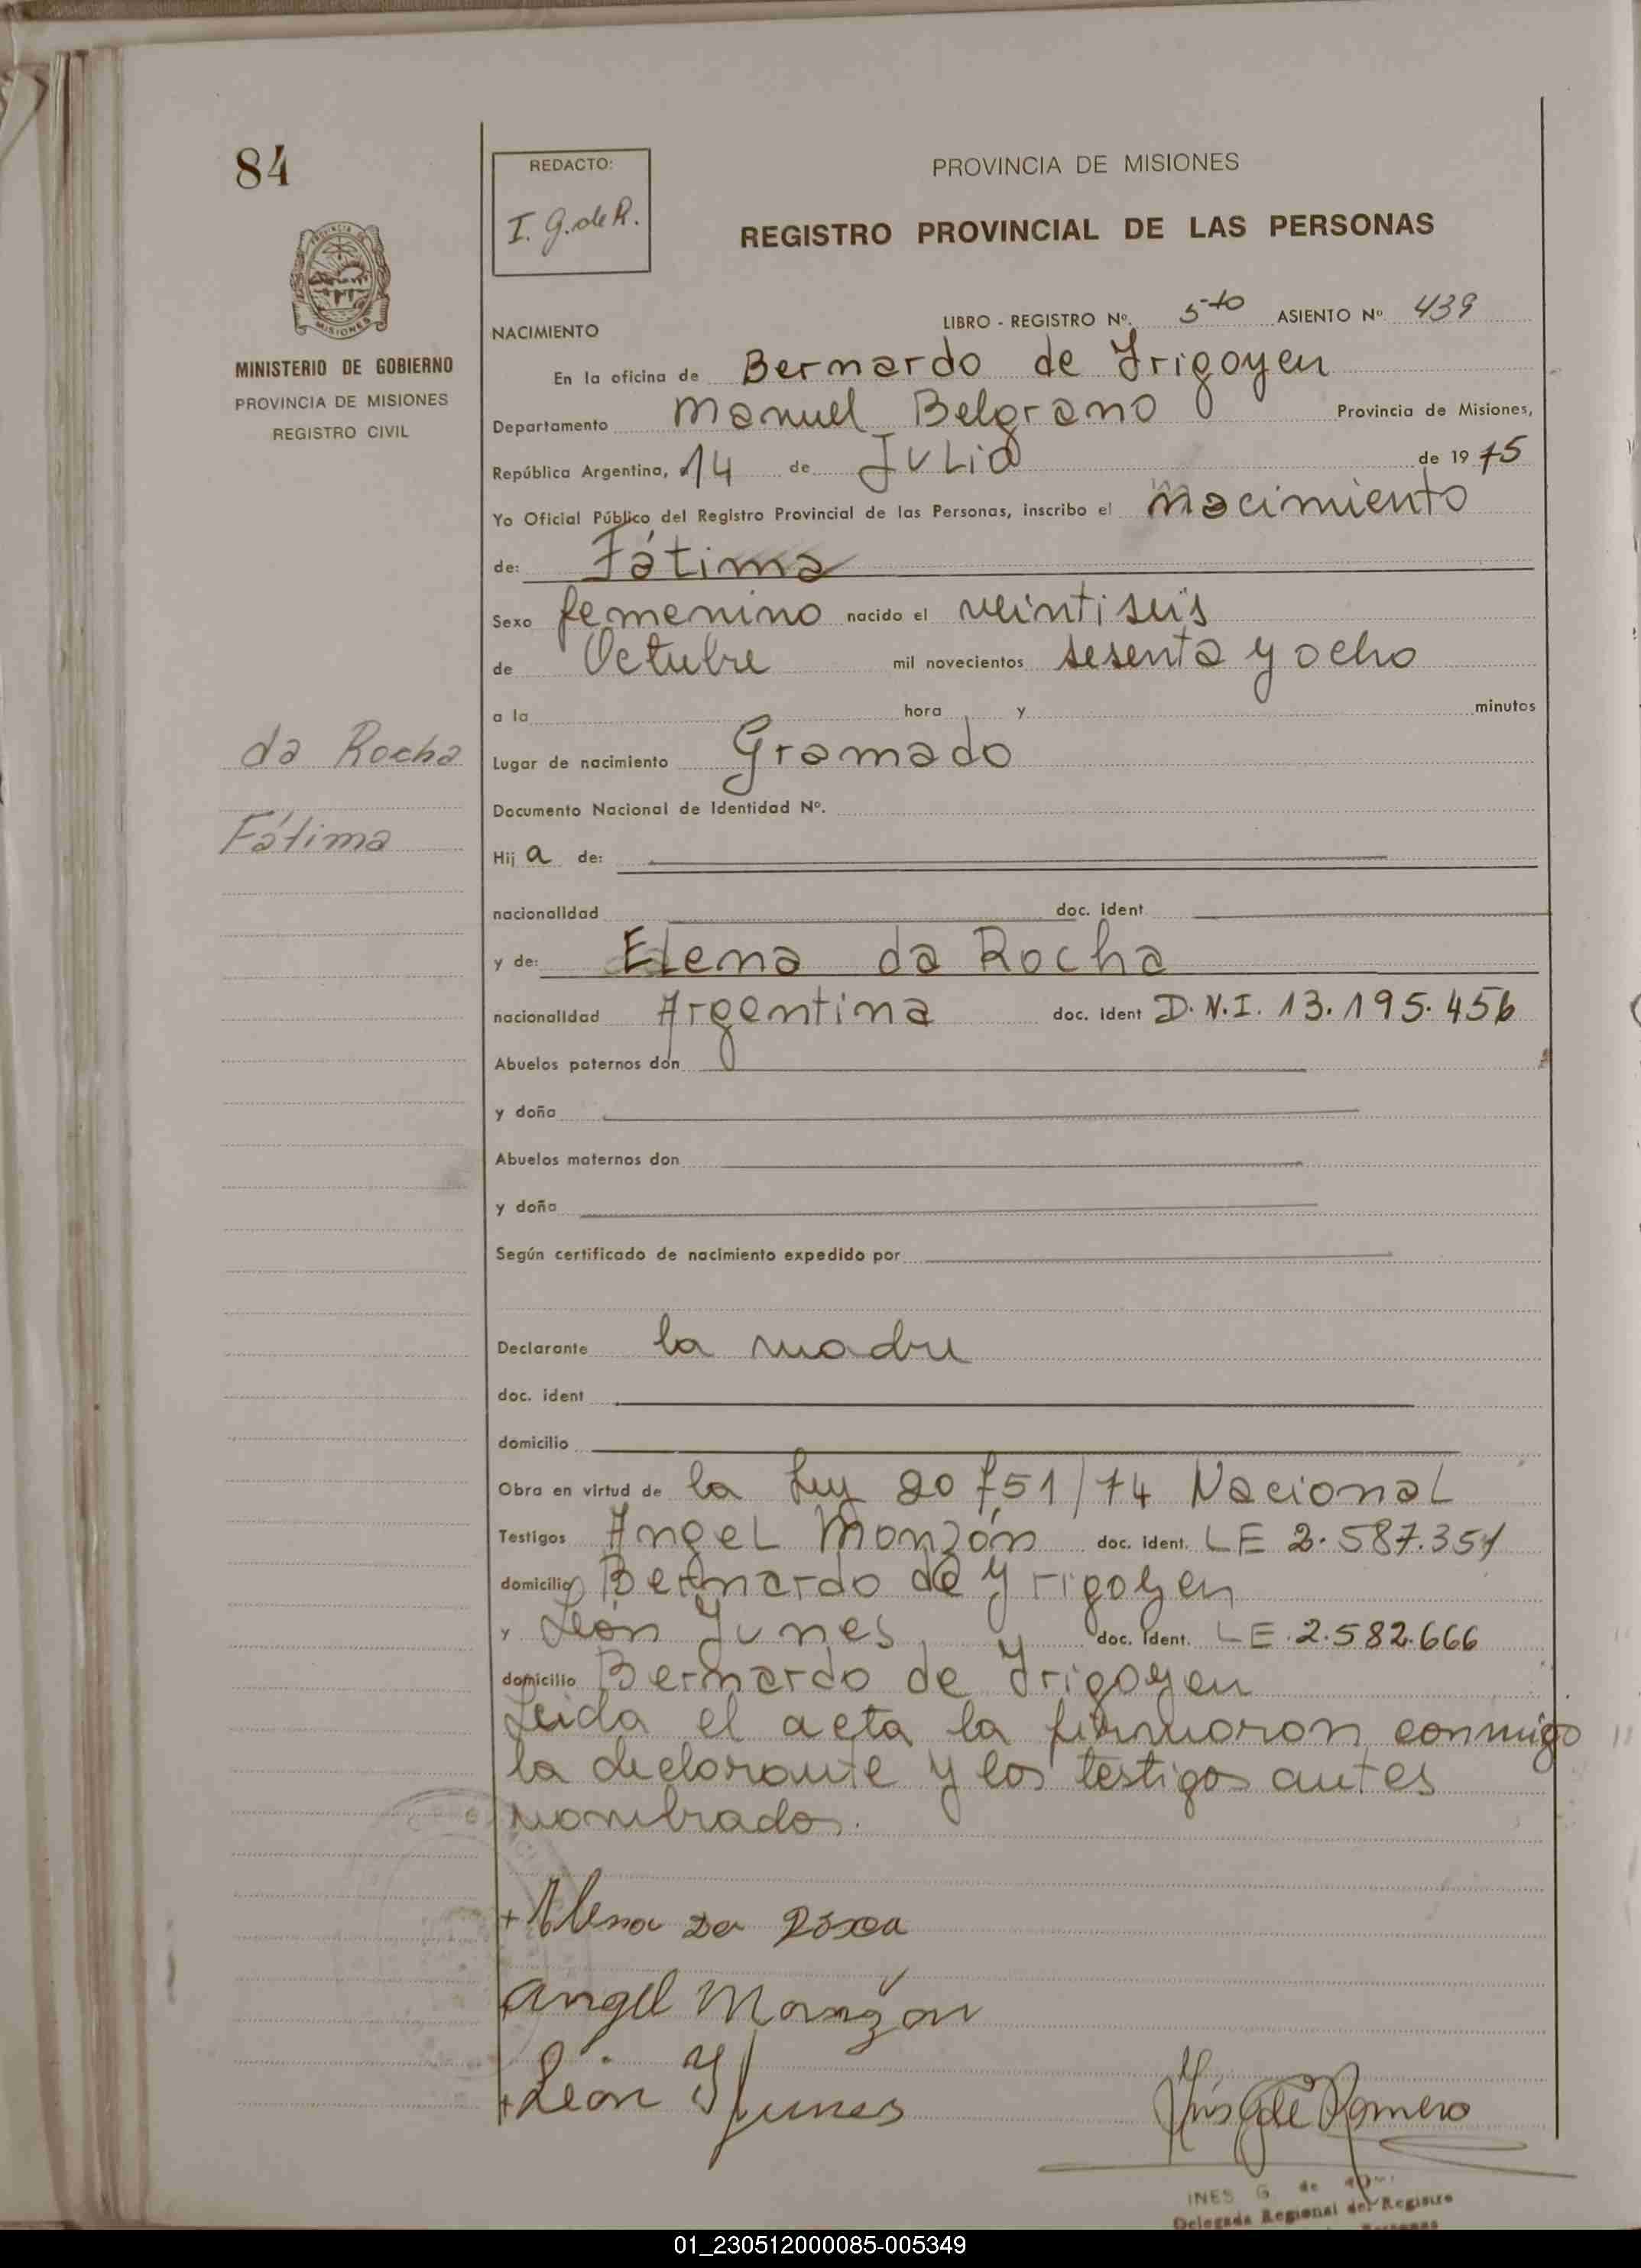 84
REDACTO:
I. G. de R.
PROVINCIA DE MISIONES
REGISTRO PROVINCIAL DE LAS PERSONAS
MISIONES
MINISTERIO DE GOBIERNO
PROVINCIA DE MISIONES
REGISTRO CIVIL
NACIMIENTO
LIBRO - REGISTRO Nº. 5to ASIENTO Nº 439
En la oficina de Bernardo de Yrigoyen
Departamento Manuel Belgrano Provincia de Misiones,
República Argentina, 14 de Julio de 1975
Yo Oficial Público del Registro Provincial de las Personas, inscribo el Nacimiento
de: Fátima
Sexo femenino nacido el veintiseis
de Octubre mil novecientos sesenta y ocho
a la hora y minutos
da Rocha
Fátima
Lugar de nacimiento Gramado
Documento Nacional de Identidad Nº.
Hija de:
nacionalidad doc. ident
y de: Elena da Rocha
nacionalidad Argentina doc. ident D.N.I. 13.195.456
Abuelos paternos don
y doña
Abuelos maternos don
y doña
Según certificado de nacimiento expedido por
Declarante la madre
doc. ident
domicilio
Obra en virtud de la Ley 20751/74 Nacional
Testigos Angel Monzón doc. ident. LE 2.587.351
domicilio Bernardo de Yrigoyen
y León Yunes doc. ident. LE 2.582.666
domicilio Bernardo de Yrigoyen
Leida el acta la firmaron conmigo
la declarante y los testigos antes
nombrados.
+ Elena Da Roxa
Angel Monzon
+ León Yunes
Inés G de Romero
INES G. de
Delegada Regional del Registro
Personas
01_230512000085-005349